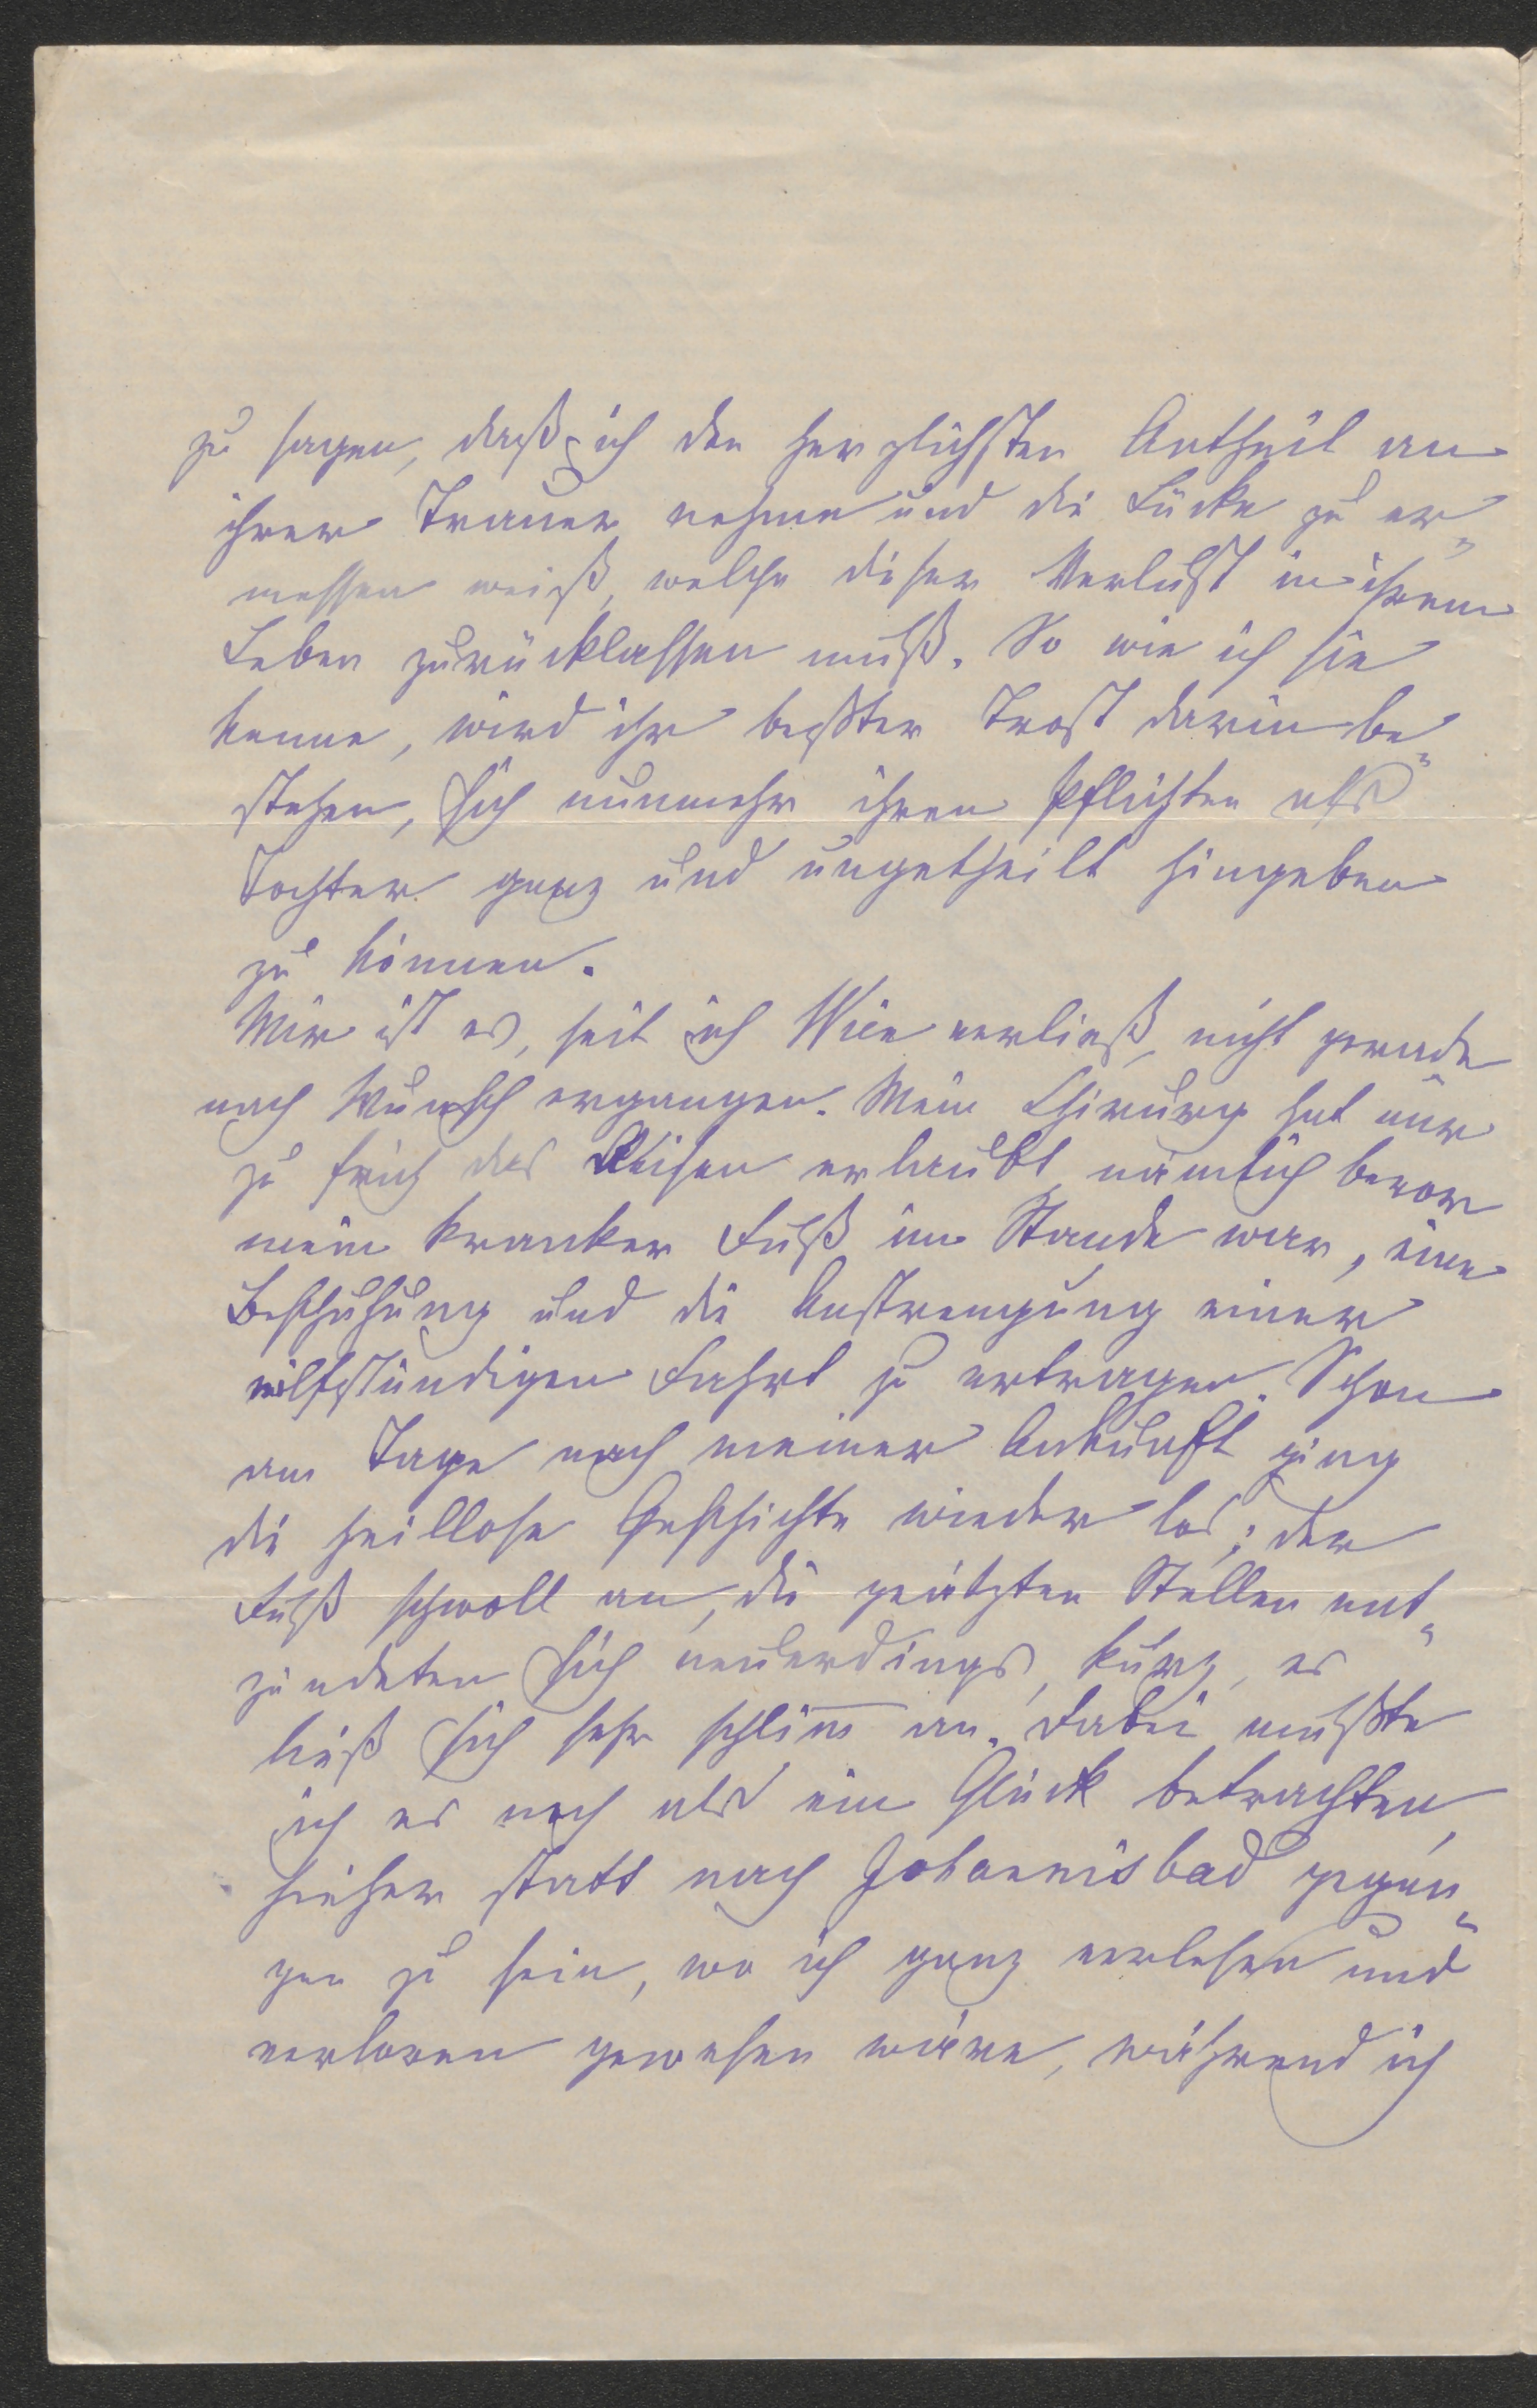 zu sagen, daß ich den herzlichsten Antheil an
ihrer Trauer nehme und die Lücke zu er„
messen weiß, welche dieser Verlust in ihrem
Leben zurücklassen muß. So wie ich sie
kenne, wird ihr bester Trost darin be„
stehen, sich nunmehr ihren Pflichten als
Tochter ganz und ungetheilt hingeben
zu können.
Mir ist es, seit ich Wien verließ, nicht gerade
nach Wunsch ergangen. Mein Chirurg hat mir
zu früh das Reisen erlaubt, nämlich bevor
mein kranker Fuß im Stande war, eine
Beschuhung und die Anstrengung einer
eilfstündigen Fahrt zu ertragen. Schon
am Tage nach meiner Ankunft ging
die heillose Geschichte wieder los; der
Fuß schwoll an, die geätzten Stellen ent„
zündeten sich neuerdings, kurz, es
ließ sich sehr schlim̅ an. Dabei mußte
ich es noch als ein Glück betrachten,
hieher statt nach Johannisbad gegan„
gen zu sein, wo ich ganz verlesen und
verloren gewesen wäre, während ich